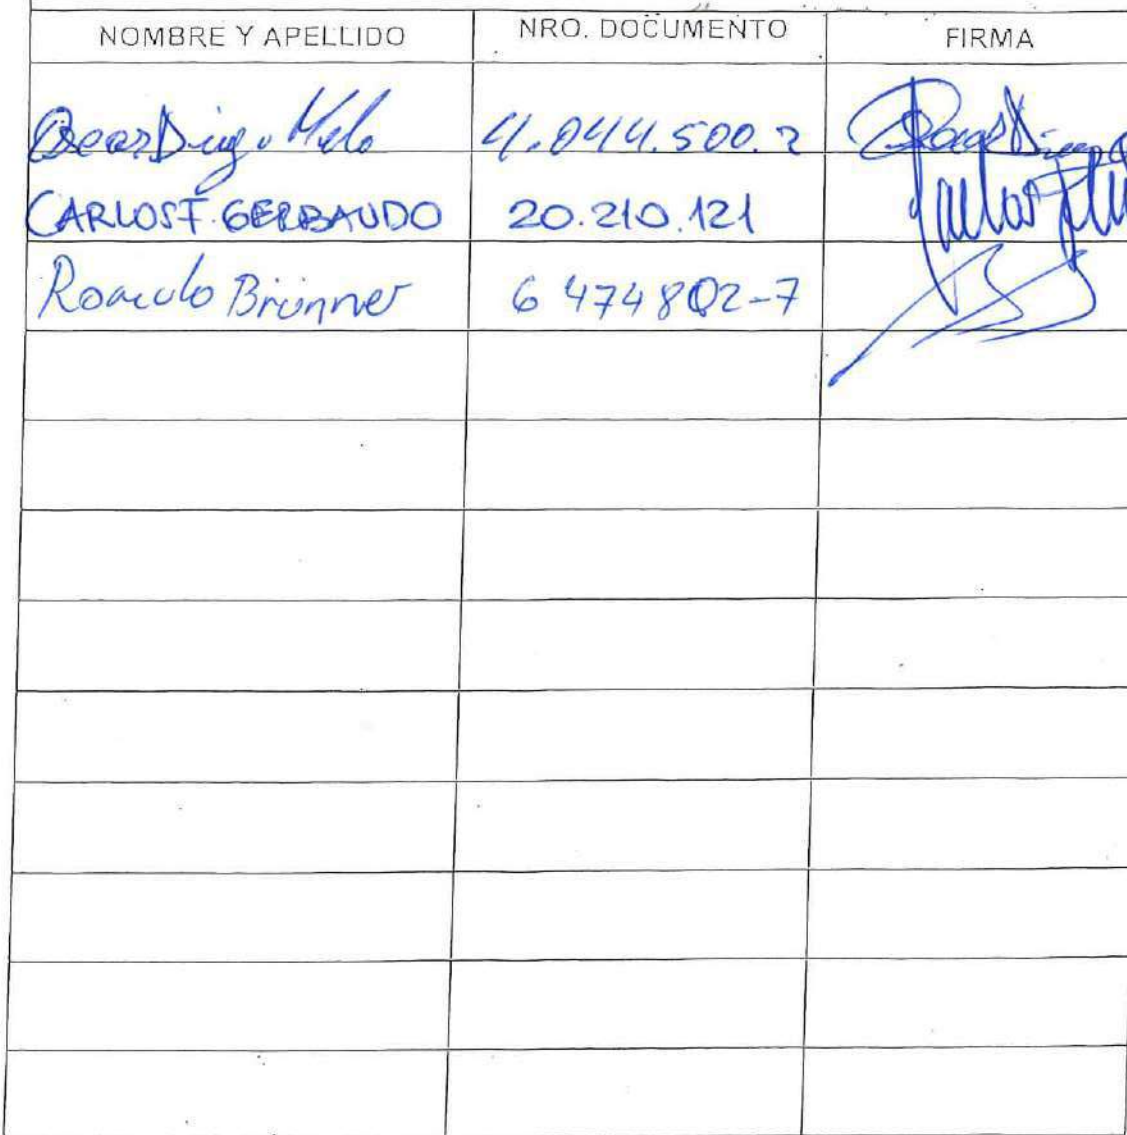 NOMBRE Y APELLIDO NRO. DOCUMENTO FIRMA
Oscar Diego Melo 4.044.500.2 Oscar Diego
CARLOS F. GERBAUDO 20.210.121
Romulo Brünner 6 474802-7